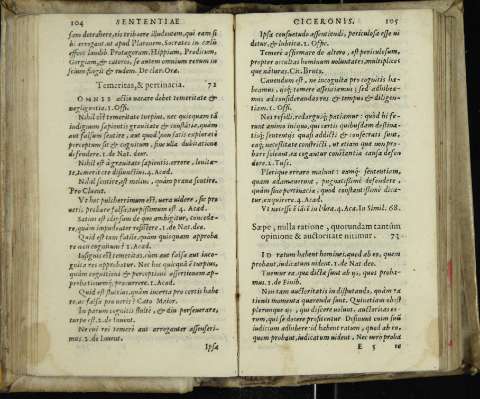 104 SENTENTIAE
sam detrahere, eis tribuere illudentem, qui eam si
bi arrogant. ut apud Platonem. Socrates in cælū
effert laudib. Protagoram, Hippiam, Prodicum,
Gorgiam, & cæteros, se autem omnium rerum in
scium fingit & rudem. De clar. Ora.
Temeritas, & pertinacia. 72
OMNIS actio vacare debet temeritate &
negligentia. 1. Offi.
Nihil est temeritate turpius, nec quicquam tā
indignum sapientis gravitate & constātia, quàm
aut falsum sentire, aut quod non satis exploratè
perceptum sit & cognitum, sine ulla dubitatione
defendere. 1. de Nat. deor.
Nihil est à gravitate sapientis, errore, levita-
te, temeritate disiunctius. 4. Acad.
Nihil sentire, est melius, quàm prava sentire.
Pro Cluent.
Ut hoc pulcherrimum est, vera videre, sic pro
veris probare falsa, turpissimum est. 4. Acad.
Satius est id ipsum de quo ambigitur, concede-
re, quàm impudenter resistere. 1. de Nat. deo.
Quid est tam futile, quàm quicquam approba
re non cognitum? 1. Acad.
Insignis est temeritas, cùm aut falsa aut inco-
gnita res approbatur. Nec hoc quicquā ē turpius,
quàm cognitioni & perceptioni assertionem ap-
probationemq; præcurrere. 1. Acad.
Quid est stultius, quàm incerta pro certis habe
re, ac falsa pro veris? Cato Maior.
In parum cognito stultè, & diu perseverare,
turpe est. 2. de Invent.
Ne cui rei temerè aut arroganter assenseri-
mus. 2. de Invent.
Ipsa
CICERONIS. 105
Ipsa consuetudo assentiendi, periculosa esse vi
detur, & lubrica. 1. Offic.
Temerè affirmare de altero, est periculosum,
propter occultas hominum voluntates, multiplices
que naturas. Cic. Bruto.
Cavendum est, ne incognita pro cognitis ha-
beamus, ijsq; temerè assentiamus; sed adhibea-
mus ad considerandas res & tempus & diligen-
tiam. 1. Offi.
Nos refelli, redarguiq; patiamur: quòd hi fe-
runt animo iniquo, qui certis quibusdam destina-
tisq; sententijs quasi addicti & consecrati sunt,
eaq; necessitate constricti, ut etiam quæ non pro-
bare soleant, ea cogantur constantiæ causa defen
dere. 2. Tusc.
Plerique errare malunt: eamq; sententiam,
quam adamaverunt, pugnacissimè defendere,
quàm sine pertinacia, quid constantissimè dica-
tur, exquirere. 4. Acad.
Vt necesse ē idē in libra. 4. Aca. In Simil. 68.
Sæpe, nulla ratione, quorundam tantùm
opinione & auctoritate nitimur. 73
ID ratum habent homines, quod ab eo, quem
probant, iudicatum vident. 1. de Nat. deo.
Tuemur ea, quæ dicta sunt ab ijs, quos proba-
mus. 1. de Finib.
Non tam auctoritatis in disputando, quàm ra
tionis momenta quærenda sunt. Quinetiam obest
plerunque ijs, qui discere volunt, auctoritas eo-
rum, qui se docere profitentur. Desinunt enim suū
iudicium adhibere: id habent ratum, quod ab eo,
quem probant, iudicatum vident. Nec vero proba
E 5 re